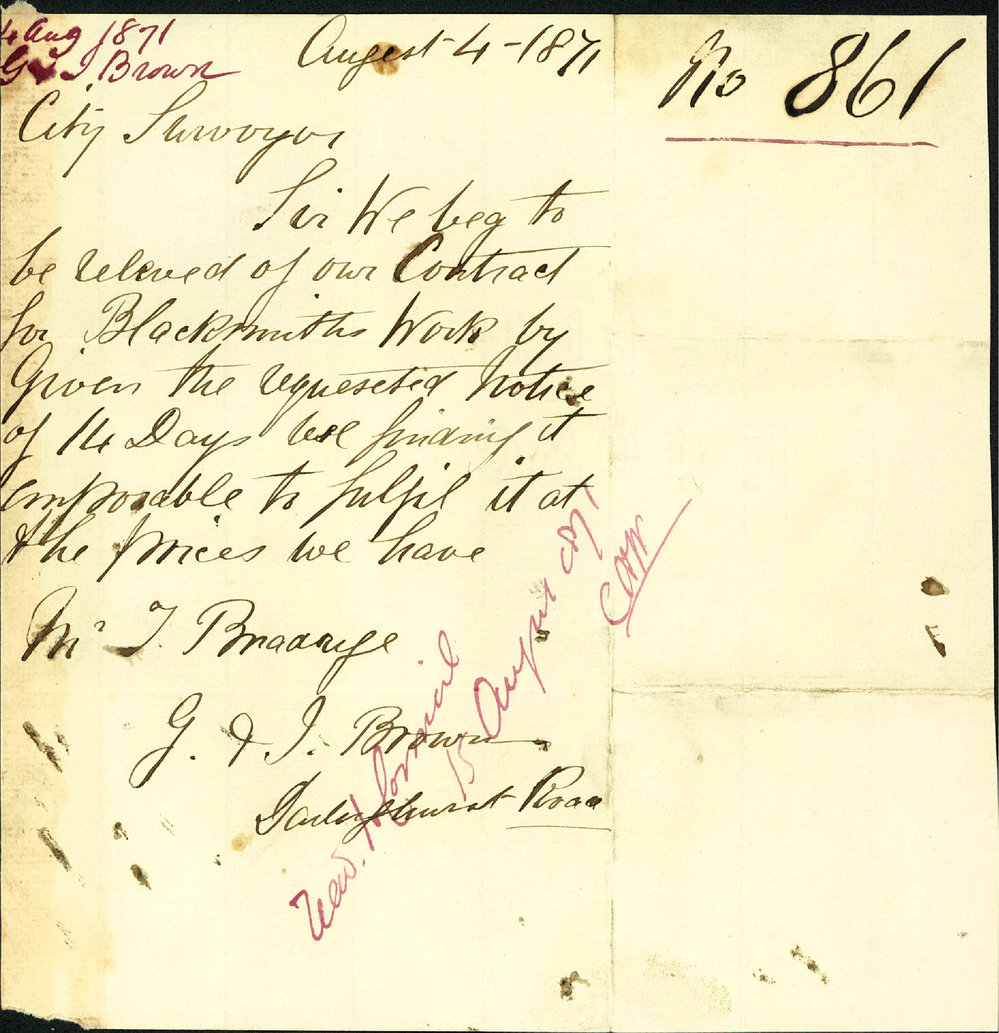 4 Aug 1871
G & I Brown
Augest 4 - 1871
No 861
City Survoyor
Sir We beg to
be releved of our Contract
for Blacksmiths Work by
Given the requeseted Notice
of 14 Days wee finding it
imposable to fulfil it at
the prices we have
Mr T. Bradrige
G. & I. Brown
Darlinghurst Road
Read. H
15 August 1871